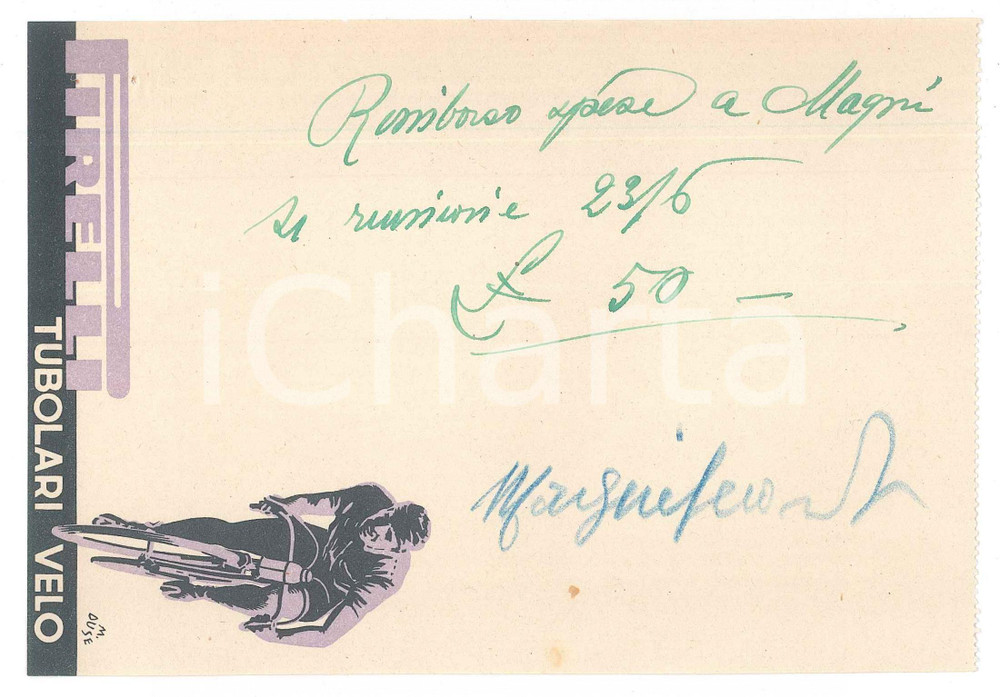 PIRELLI
TUBOLARI VELO
M. DUSE
Rimborso spese a Magni
x riunione 23/6
£ 50 —
iCharta